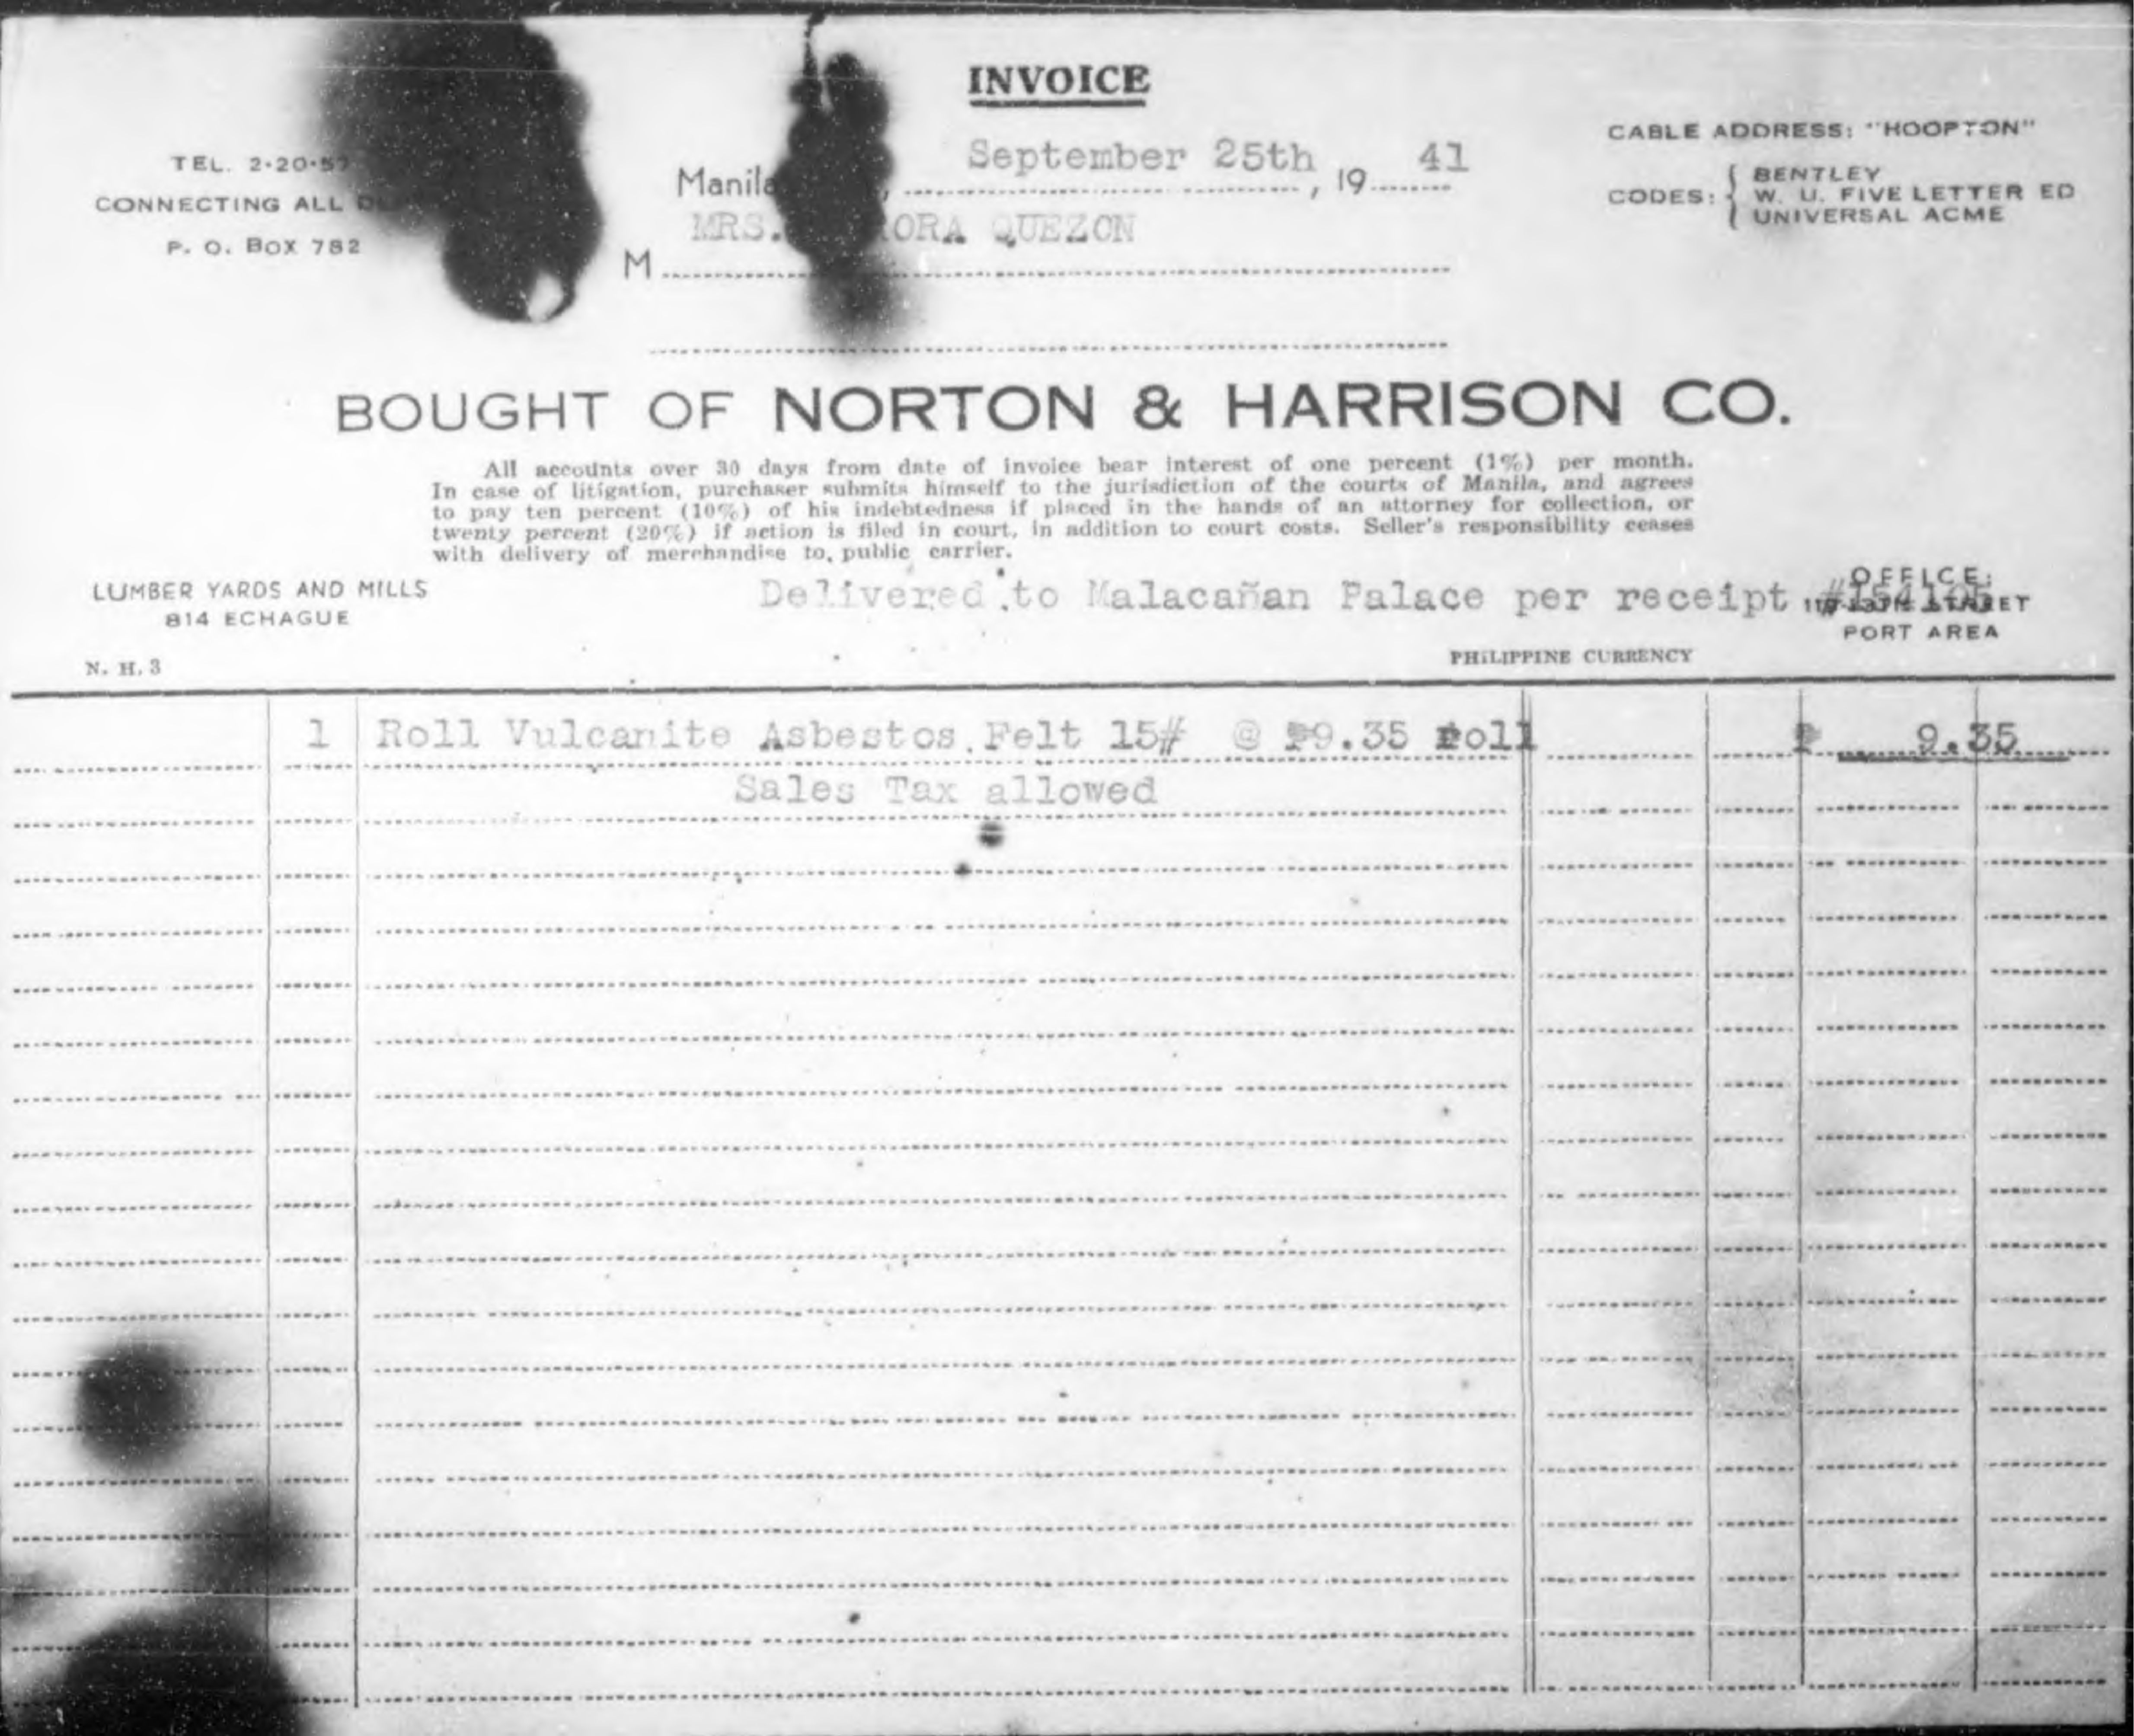 INVOICE
TEL. 2-20-57
CONNECTING ALL
P. O. BOX 782
Manila, September 25th, 19 41
MRS. ORA QUEZON
M
CABLE ADDRESS: "HOOPTON"
CODES: { BENTLEY
W. U. FIVE LETTER ED
UNIVERSAL ACME
BOUGHT OF NORTON & HARRISON CO.
All accounts over 30 days from date of invoice bear interest of one percent (1%) per month.
In case of litigation, purchaser submits himself to the jurisdiction of the courts of Manila, and agrees
to pay ten percent (10%) of his indebtedness if placed in the hands of an attorney for collection, or
twenty percent (20%) if action is filed in court, in addition to court costs. Seller's responsibility ceases
with delivery of merchandise to public carrier.
LUMBER YARDS AND MILLS
814 ECHAGUE
Delivered to Malacañan Palace per receipt
OFFICE:
STREET
PORT AREA
N. H. 3
PHILIPPINE CURRENCY
1 Roll Vulcanite Asbestos Felt 15# @ ₱9.35 roll ₱ 9.35
Sales Tax allowed